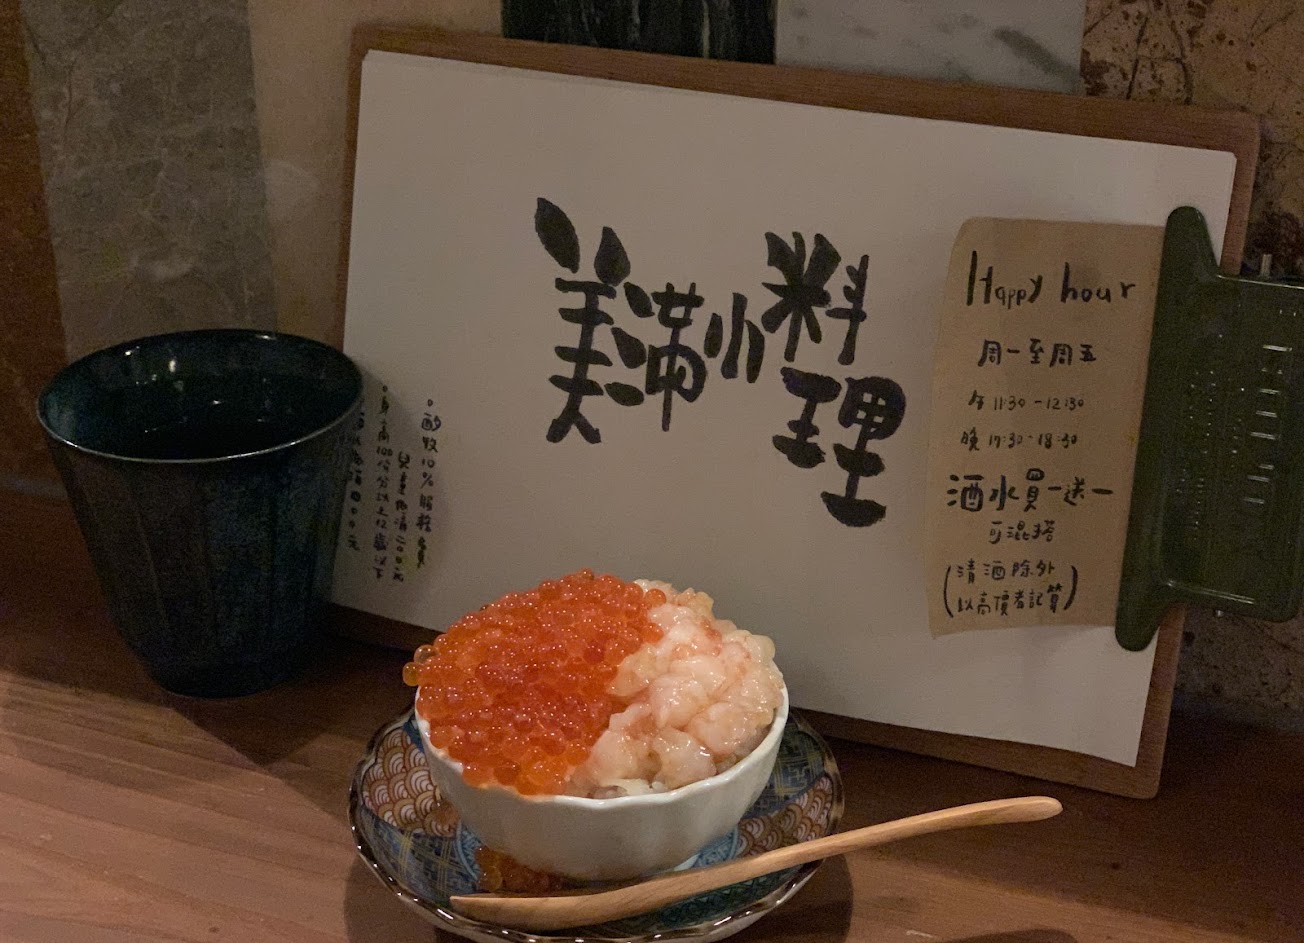 美滿小料理
Happy hour
周一至周五
午 11:30 - 12:30
晚 17:30 - 18:30
酒水買一送一
可混搭
(清酒除外
以高價者記算)
。酌收10%服務費
兒童酌收200元
。身高100公分以上12歲以下